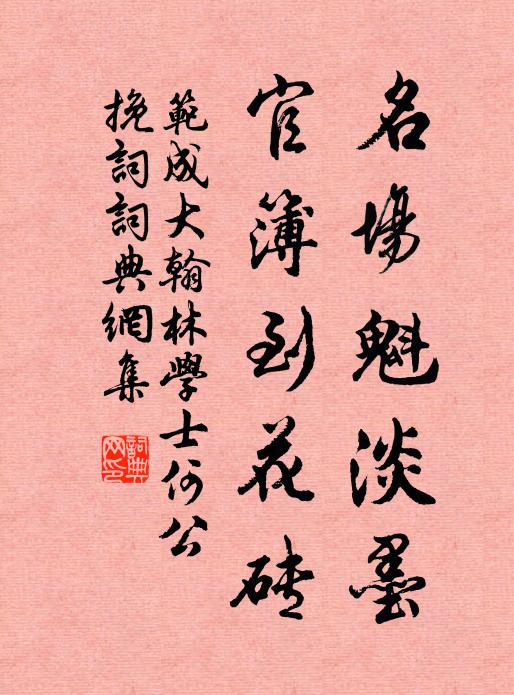 名場魁淡墨
官簿到花磚
範成大翰林學士何公
挽詞詞典網集
詞典
网印